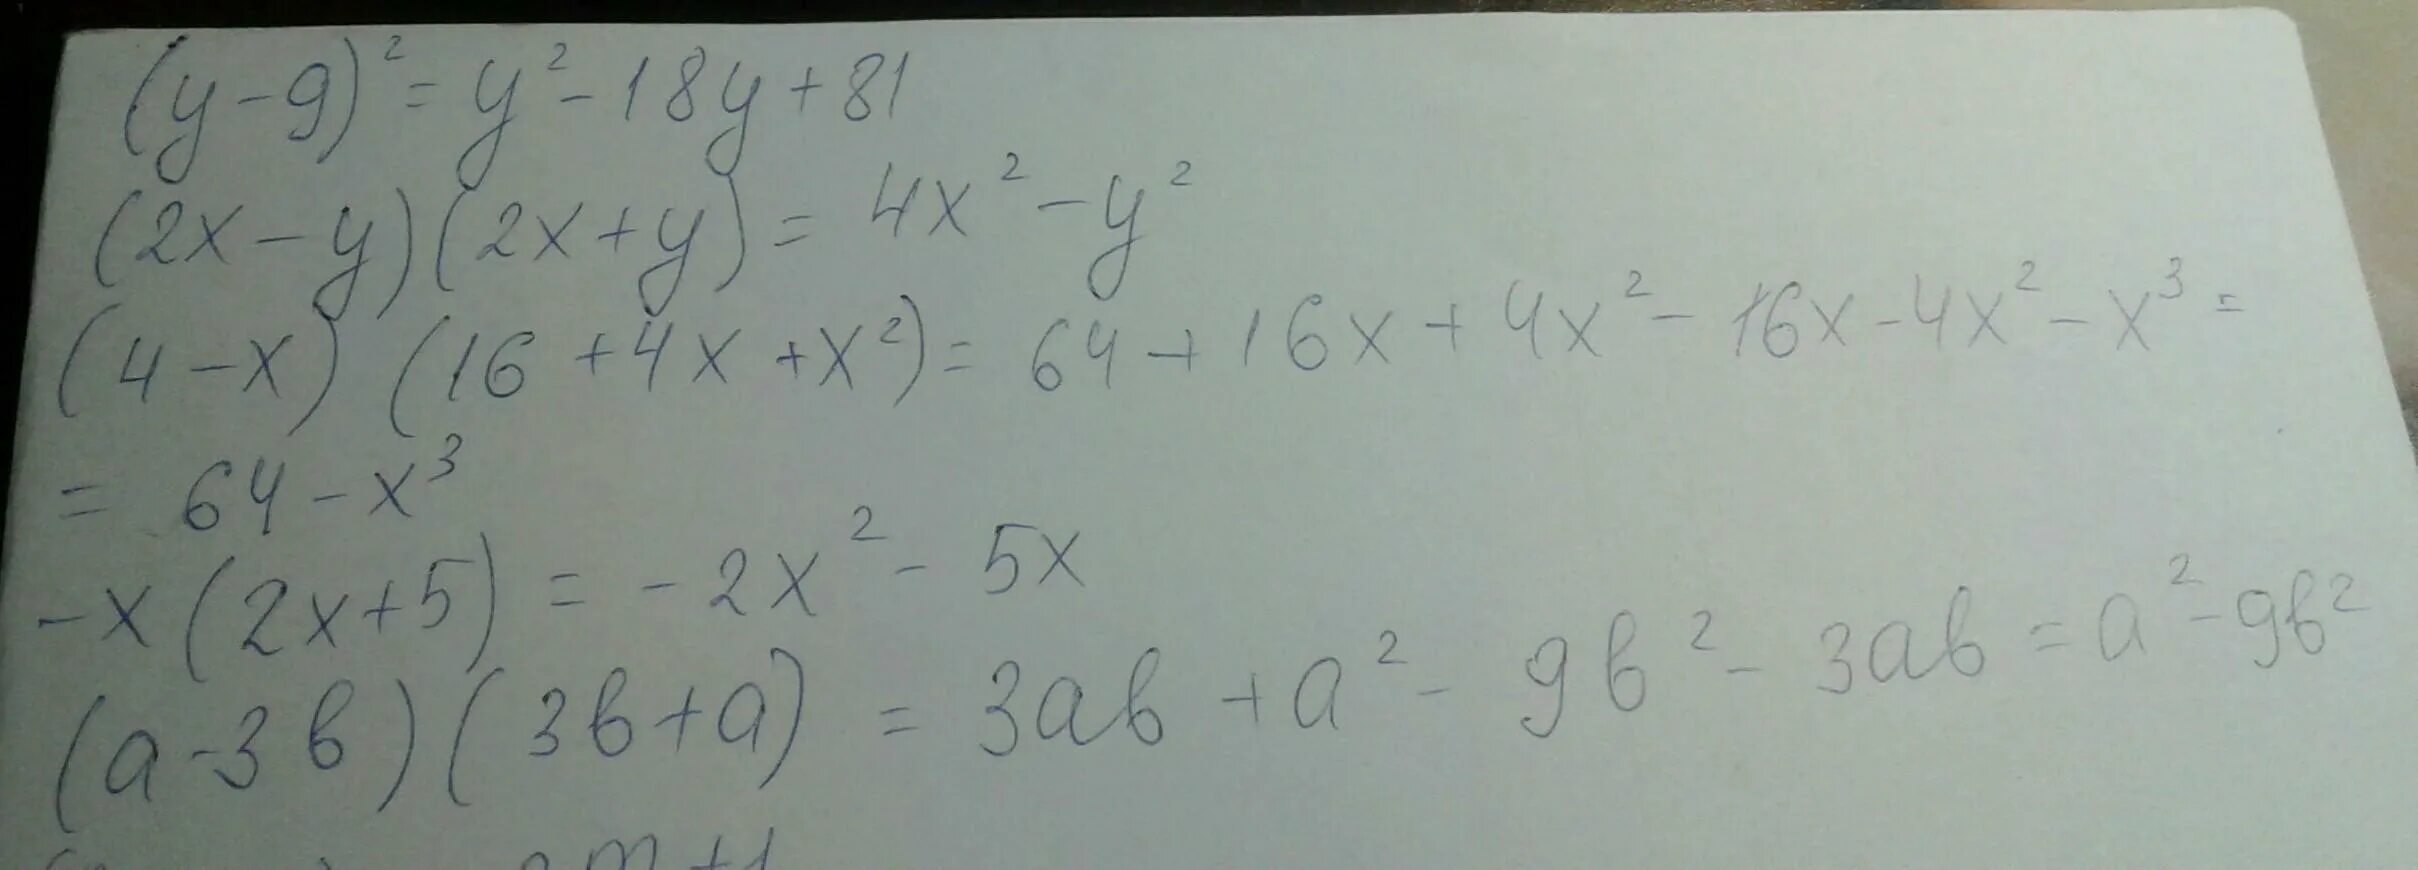 (y-9)² = y² - 18y + 81
(2x - y)(2x + y) = 4x² - y²
(4 - x) (16 + 4x + x²) = 64 + 16x + 4x² - 16x - 4x² - x³ =
= 64 - x³
-x (2x+5) = -2x² - 5x
(a - 3b)(3b + a) = 3ab + a² - 9b² - 3ab = a² - 9b²